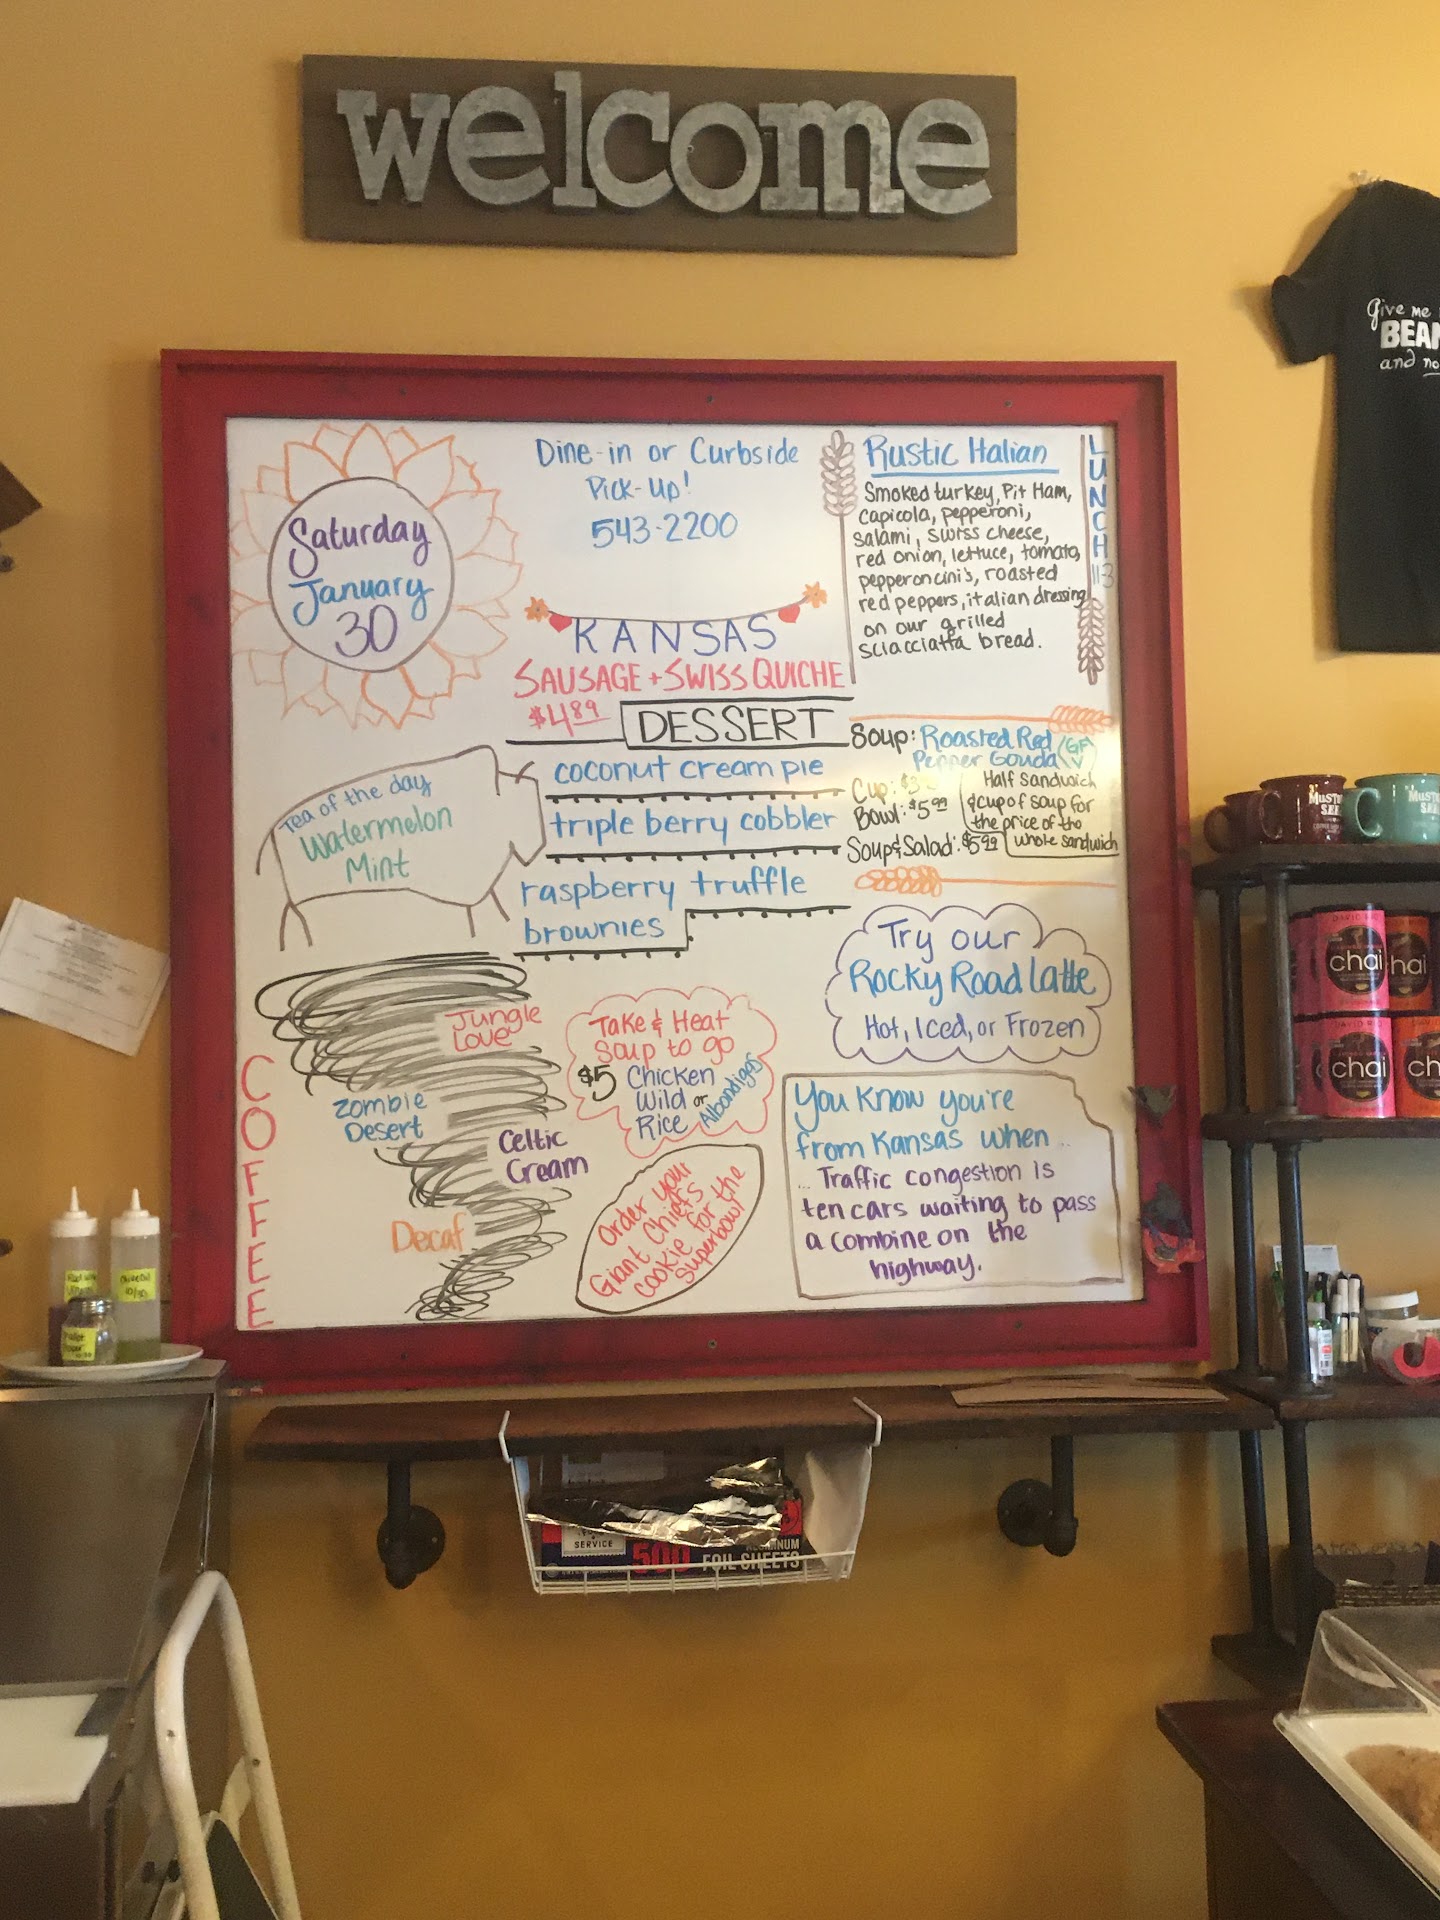 welcome
Saturday
January
30
Dine-in or Curbside
Pick-Up!
543-2200
KANSAS
SAUSAGE + SWISS QUICHE
$4.89
DESSERT
coconut cream pie
triple berry cobbler
raspberry truffle
brownies
LUNCH
Rustic Italian
Smoked turkey, Pit Ham,
capicola, pepperoni,
salami, swiss cheese,
red onion, lettuce, tomato,
pepperoncini's, roasted
red peppers, italian dressing
on our grilled
sciacciatta bread.
Soup: Roasted Red
Pepper Gouda
GF
Cup:
Bowl: $5.99
Soup & Salad: $5.99
Half sandwich
& cup of soup for
the price of the
whole sandwich
Tea of the day
Watermelon
Mint
COFFEE
Jungle
Love
Zombie
Desert
Celtic
Cream
Decaf
Take & Heat
Soup to go
$5 Chicken
Wild or
Rice
Albondigas
Order your
Giant Chiefs
cookie for the
Superbowl
Try our
Rocky Road Latte
Hot, Iced, or Frozen
You know you're
from Kansas when..
... Traffic congestion is
ten cars waiting to pass
a combine on the
highway.
Give me
BEAN
and no
MUST
SEE
MUST
SEE
DAVID RIO
chai
chai
DAVID RIO
chai
ch
10/30
SERVICE
500
ALUMINUM
FOIL SHEETS